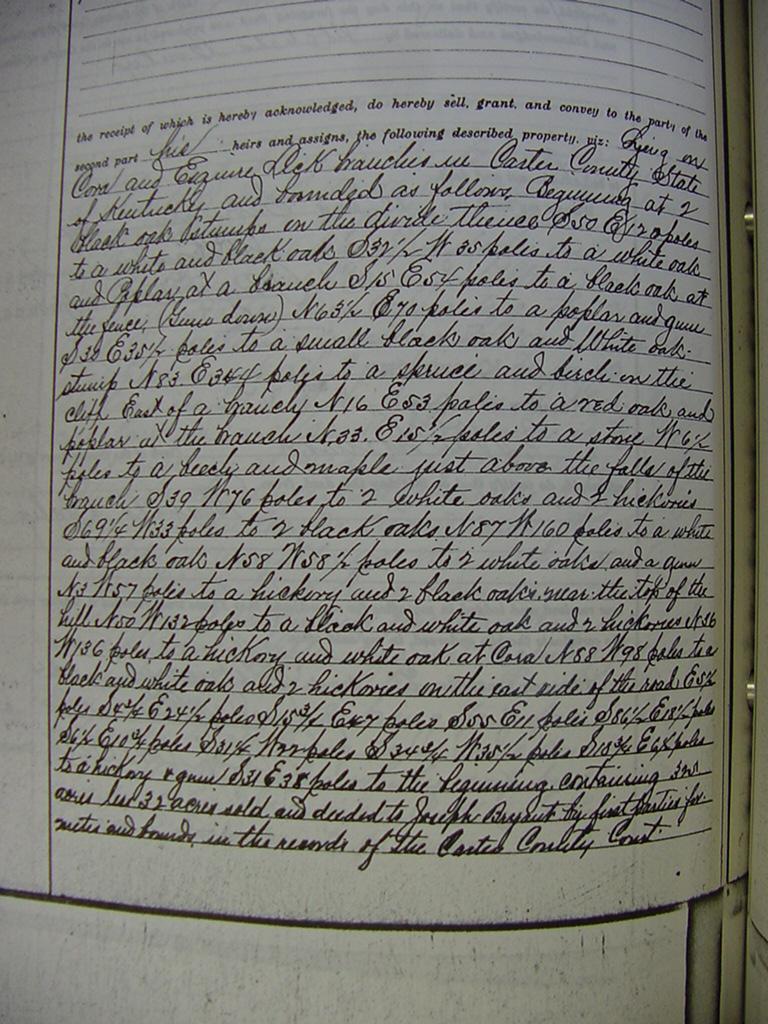 the receipt of which is hereby acknowledged, do hereby sell, grant, and convey to the party of the
second part his heirs and assigns, the following described property, viz: Lying on
Cora and Esquire Lick branches in Carter County State
of Kentucky and bounded as follows, Beginning at 2
black oak stumps on the divide thence S50 E120 poles
to a white and black oak S32½ W 35 poles to a white oak
and Poplar at a branch S15 E54 poles to a black oak at
the fence, (Gum down) N63½ E70 poles to a poplar and gum
S39 E35½ poles to a small black oak and White oak
stump N83 E344 poles to a spruce and birch on the
cliff East of a branch N16 E53 poles to a red oak and
poplar at the branch N.33. E15½ poles to a stone W6½
poles to a beech and maple just above the falls of the
branch S39 W76 poles to 2 white oaks and 2 hickories
S69¼ W33 poles to 2 black oaks N87 W160 poles to a white
and black oak N58 W58½ poles to 2 white oaks and a gum
N3 W57 poles to a hickory and 2 black oaks near the top of the
hill N50 W132 poles to a black and white oak and 2 hickories N36
W136 poles to a hickory and white oak at Cora N88 W98 poles to a
black and white oak and 2 hickories on the east side of the road E5½
poles S4¾ E24½ poles S15¾ E47 poles S55 E11 poles S86½ E18½ poles
S6½ E10¾ poles S31¼ W22 poles S34¾ W35½ poles S18¾ poles
to a hickory & gum S31 E38 poles to the beginning. containing
acres less 32 acres sold, and deeded to Joseph Bryant by first parties for
metes and bounds, in the records of the Carter County Court